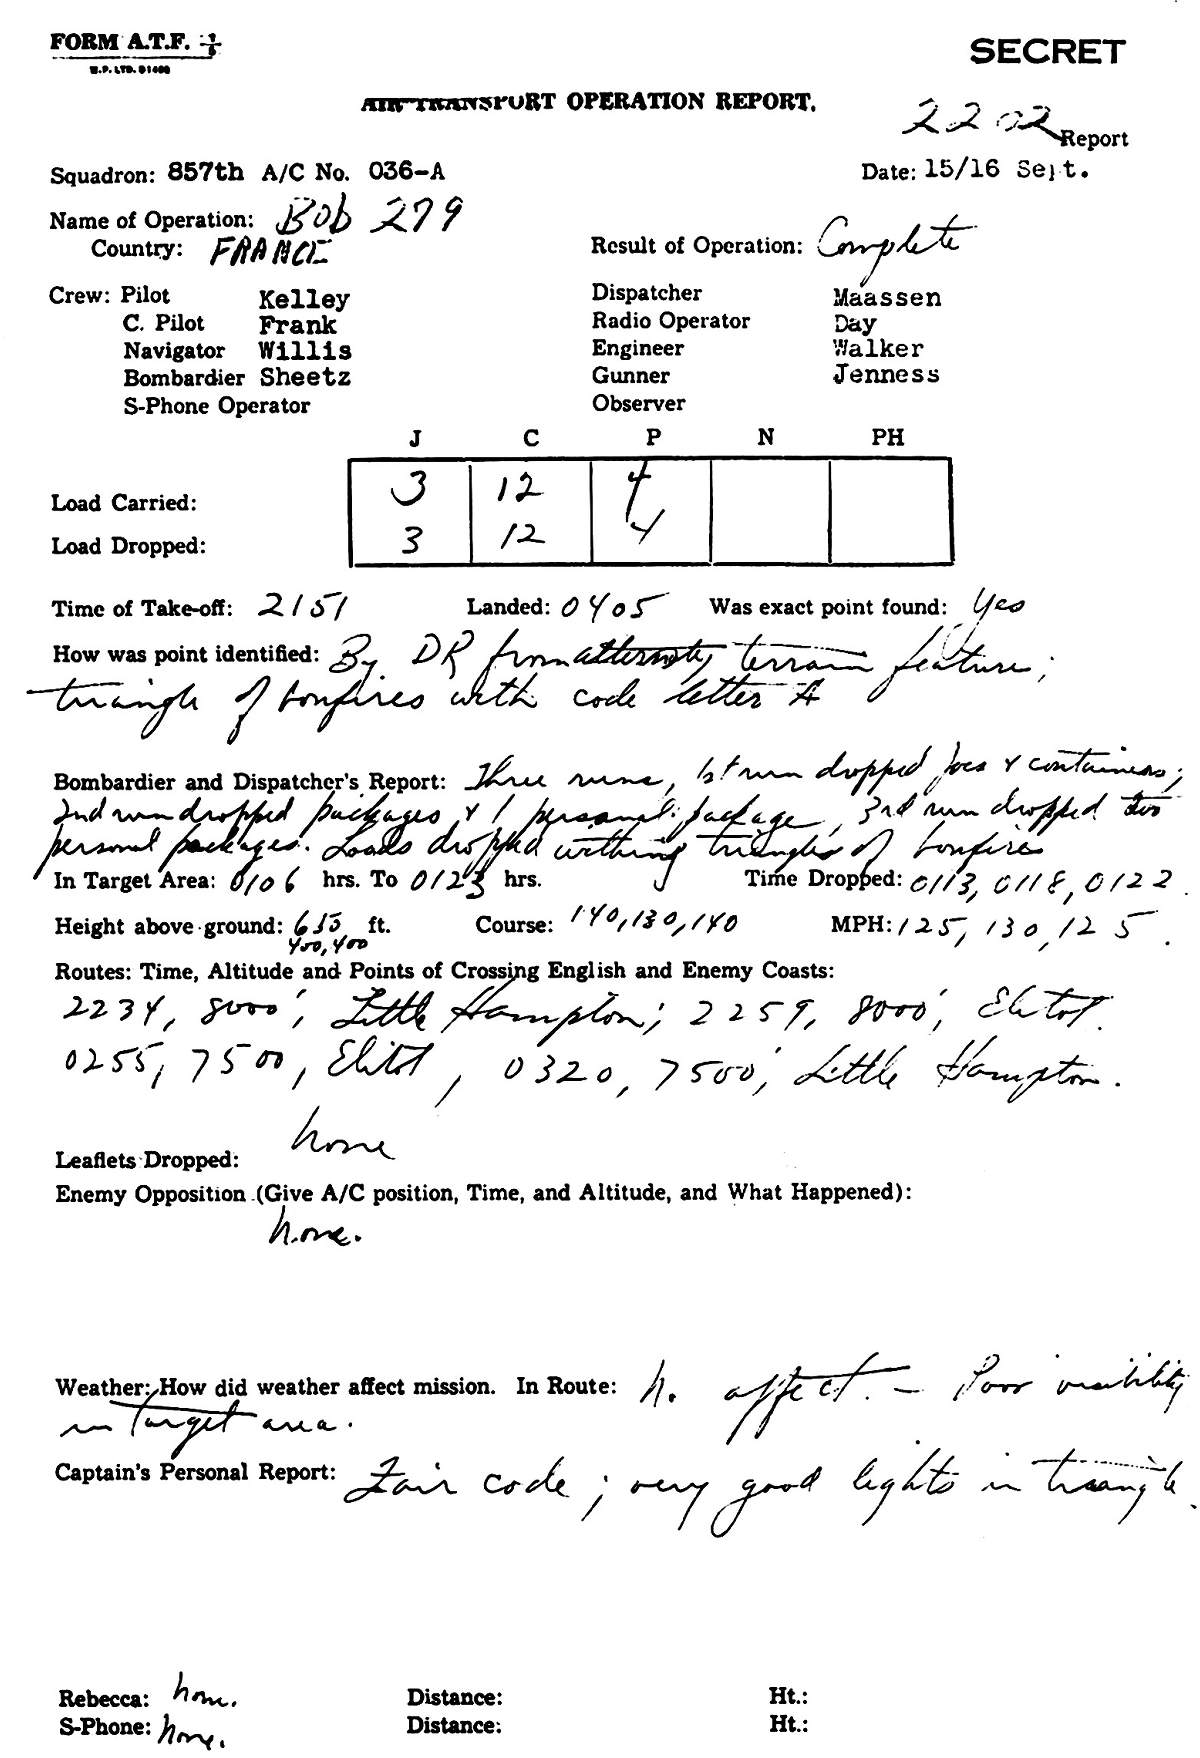 FORM A.T.F. 1/5
W.P. LTD. 91400
SECRET
AIR TRANSPORT OPERATION REPORT.
2202 Report
Squadron: 857th A/C No. 036-A Date: 15/16 Sept.
Name of Operation: Bob 279
Country: FRANCE Result of Operation: Complete
Crew: Pilot Kelley Dispatcher Maassen
C. Pilot Frank Radio Operator Day
Navigator Willis Engineer Walker
Bombardier Sheetz Gunner Jenness
S-Phone Operator Observer
J C P N PH
Load Carried: 3 12 4
Load Dropped: 3 12 4
Time of Take-off: 2151 Landed: 0405 Was exact point found: Yes
How was point identified: By DR from terrain feature;
triangle of bonfires with code letter A
Bombardier and Dispatcher's Report: Three runs, 1st run dropped Joes & containers;
2nd run dropped packages & 1 personal package, 3rd run dropped two
personal packages. Loads dropped withing triangles of bonfires
In Target Area: 0106 hrs. To 0123 hrs. Time Dropped: 0113, 0118, 0122
Height above ground: 615 ft. Course: 140, 130, 140 MPH: 125, 130, 125.
400, 400
Routes: Time, Altitude and Points of Crossing English and Enemy Coasts:
2234, 8000', Little Hampton; 2259, 8000', Elitot.
0255, 7500, Elitot, 0320, 7500', Little Hampton.
Leaflets Dropped: none
Enemy Opposition (Give A/C position, Time, and Altitude, and What Happened):
none.
Weather: How did weather affect mission. In Route: No affect. - Poor visibility
in target area.
Captain's Personal Report: Fair code; very good lights in triangle.
Rebecca: none. Distance: Ht.:
S-Phone: none. Distance: Ht.: